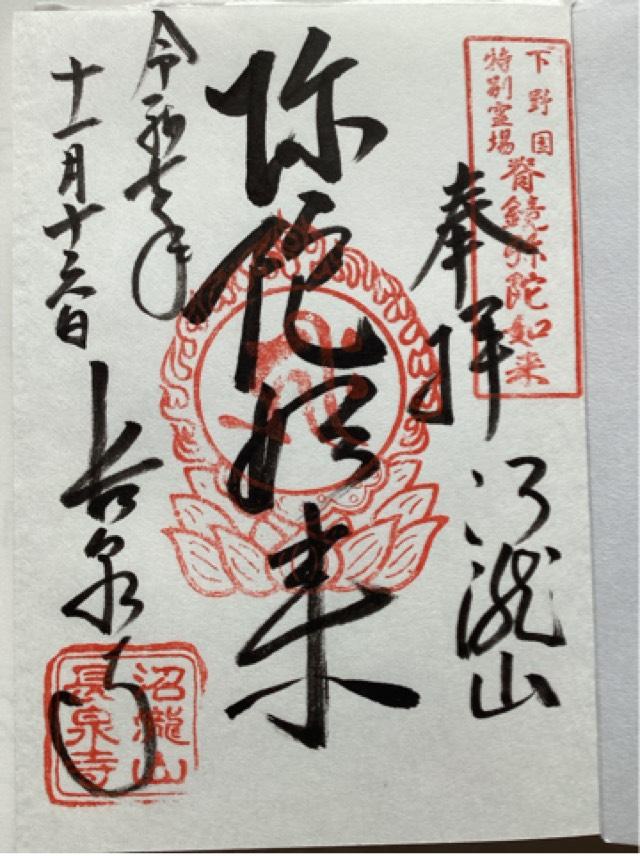 下野国
特別霊場
脊鏡弥陀如来
奉拝
沼瀧山
弥陀如来
令和七年
十一月十六日
長泉寺
沼瀧山
長泉寺